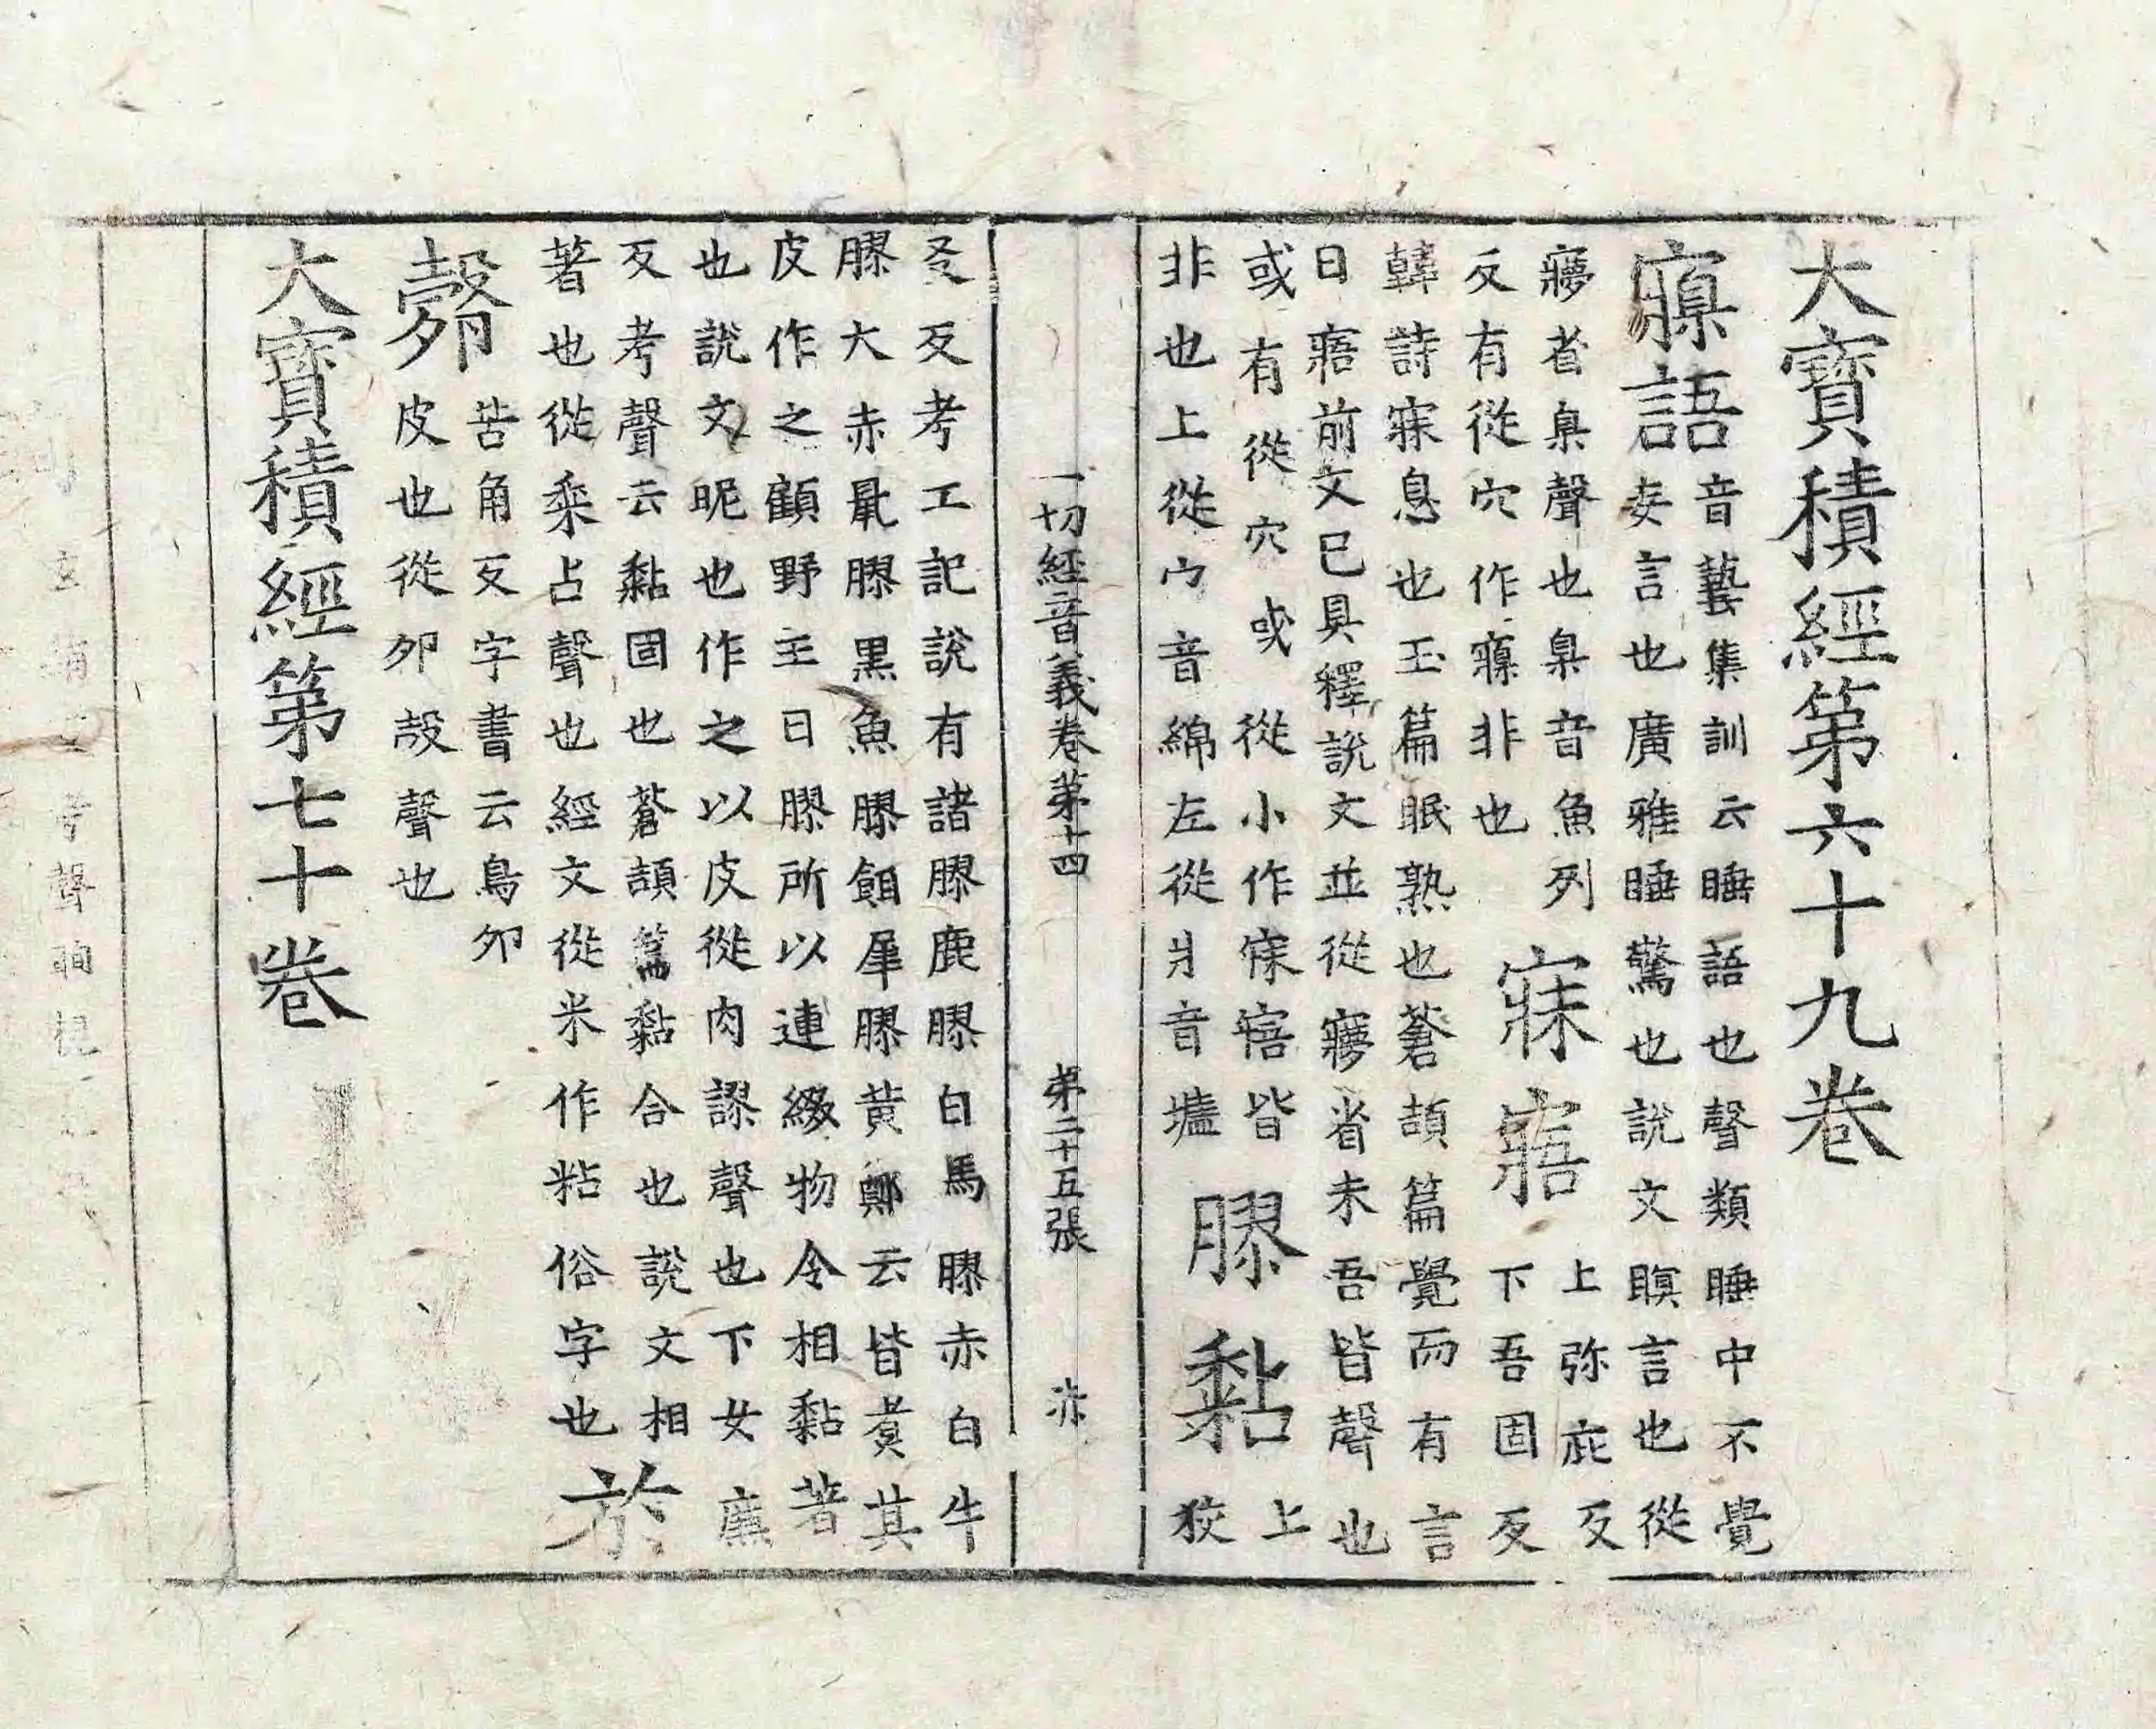 大寶積經第六十九卷
寱語
音藝集訓云睡語也聲類睡中不覺
妄言也廣雅睡驚也說文瞑言也從
㝱省臬聲也臬音魚列
反有從穴作窽非也
寐寤
上弥庇反
下吾固反
韓詩寐息也玉篇眠熟也蒼頡篇覺而有言
曰寤前文已具釋說文並從㝱省未吾皆聲也
或有從穴或從小作寐寤皆
非也上從宀音綿左從爿音墻
膠黏
上
狡
反考工記說有諸膠鹿膠白馬膠赤白牛
膠大赤鼠膠黑魚膠餌犀膠黄鄭云皆煑其
皮作之顧野王曰膠所以連綴物令相黏著
也說文昵也作之以皮從肉翏聲也下女廉
反考聲云黏固也蒼頡篇黏合也說文相
著也從黍占聲也經文從米作粘俗字也
於
㱿
苦角反字書云鳥卵
皮也從卵㱿聲也
大寶積經第七十卷
一切經音義卷第十四 第二十五張 赤